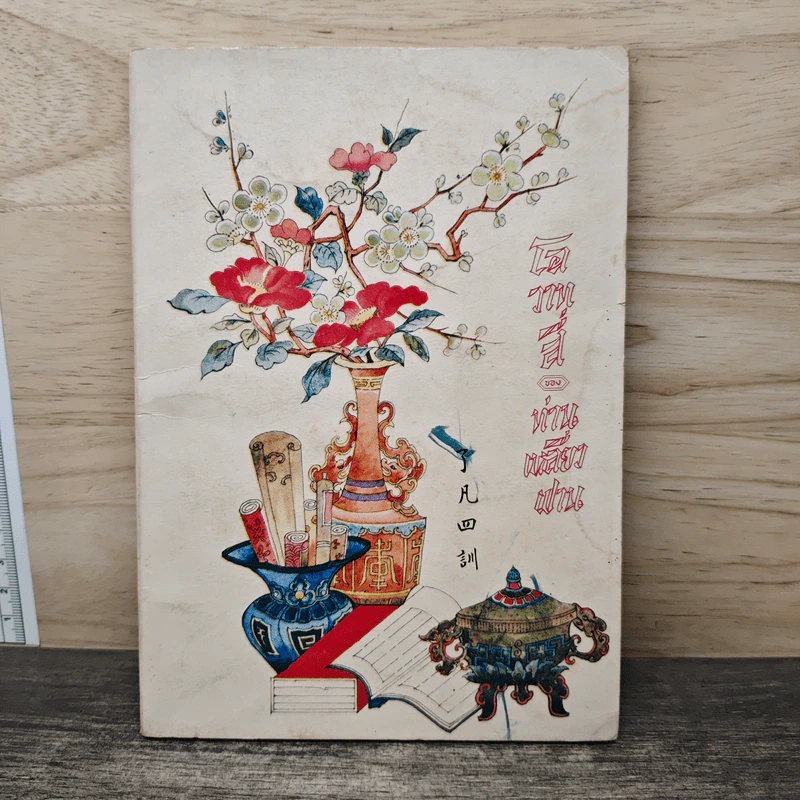 โอ
วาท
สี่
ของ
ท่าน
เหลี่ยว
ฝาน
了凡四訓